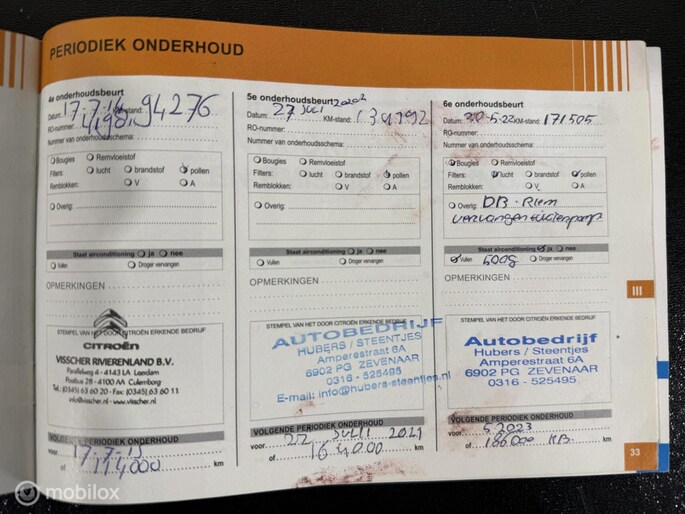 PERIODIEK ONDERHOUD
4e onderhoudsbeurt
Datum: 17-7-14 KM-stand: 94276
RO-nummer:
Nummer van onderhoudsschema:
Bougies Remvloeistof
Filters: lucht brandstof pollen
Remblokken: V A
Overig:
Staat airconditioning ja nee
Vullen Droger vervangen
OPMERKINGEN
STEMPEL VAN HET DOOR CITROËN ERKENDE BEDRIJF
CITROËN
VISSCHER RIVIERENLAND B.V.
Parallelweg 4 - 4143 LA Leerdam
Postbus 28 - 4100 AA Culemborg
Tel.: (0345) 63 60 20 - Fax: (0345) 63 60 11
info@visscher.nl - www.visscher.nl
VOLGENDE PERIODIEK ONDERHOUD
voor 17-7-15
of 114000 km
5e onderhoudsbeurt
Datum: 27 JULI KM-stand:
RO-nummer:
Nummer van onderhoudsschema:
Bougies Remvloeistof
Filters: lucht brandstof pollen
Remblokken: V A
Overig:
Staat airconditioning ja nee
Vullen Droger vervangen
OPMERKINGEN
STEMPEL VAN HET DOOR CITROËN ERKENDE BEDRIJF
AUTOBEDRIJF
HUBERS / STEENTJES
Amperestraat 6A
6902 PG ZEVENAAR
0316 - 525495
E-mail: info@hubers-steentjes.nl
VOLGENDE PERIODIEK ONDERHOUD
voor 22 JULI 2021
of 164000 km
6e onderhoudsbeurt
Datum: 20-5-22 KM-stand: 171505
RO-nummer:
Nummer van onderhoudsschema:
Bougies Remvloeistof
Filters: lucht brandstof pollen
Remblokken: V A
Overig: DB-Riem
vervangen
Staat airconditioning ja nee
Vullen 500g Droger vervangen
OPMERKINGEN
STEMPEL VAN HET DOOR CITROËN ERKENDE BEDRIJF
Autobedrijf
Hubers / Steentjes
Amperestraat 6A
6902 PG ZEVENAAR
0316 - 525495
VOLGENDE PERIODIEK ONDERHOUD
voor 5 2023
of 186000 km
III
33
© mobilox